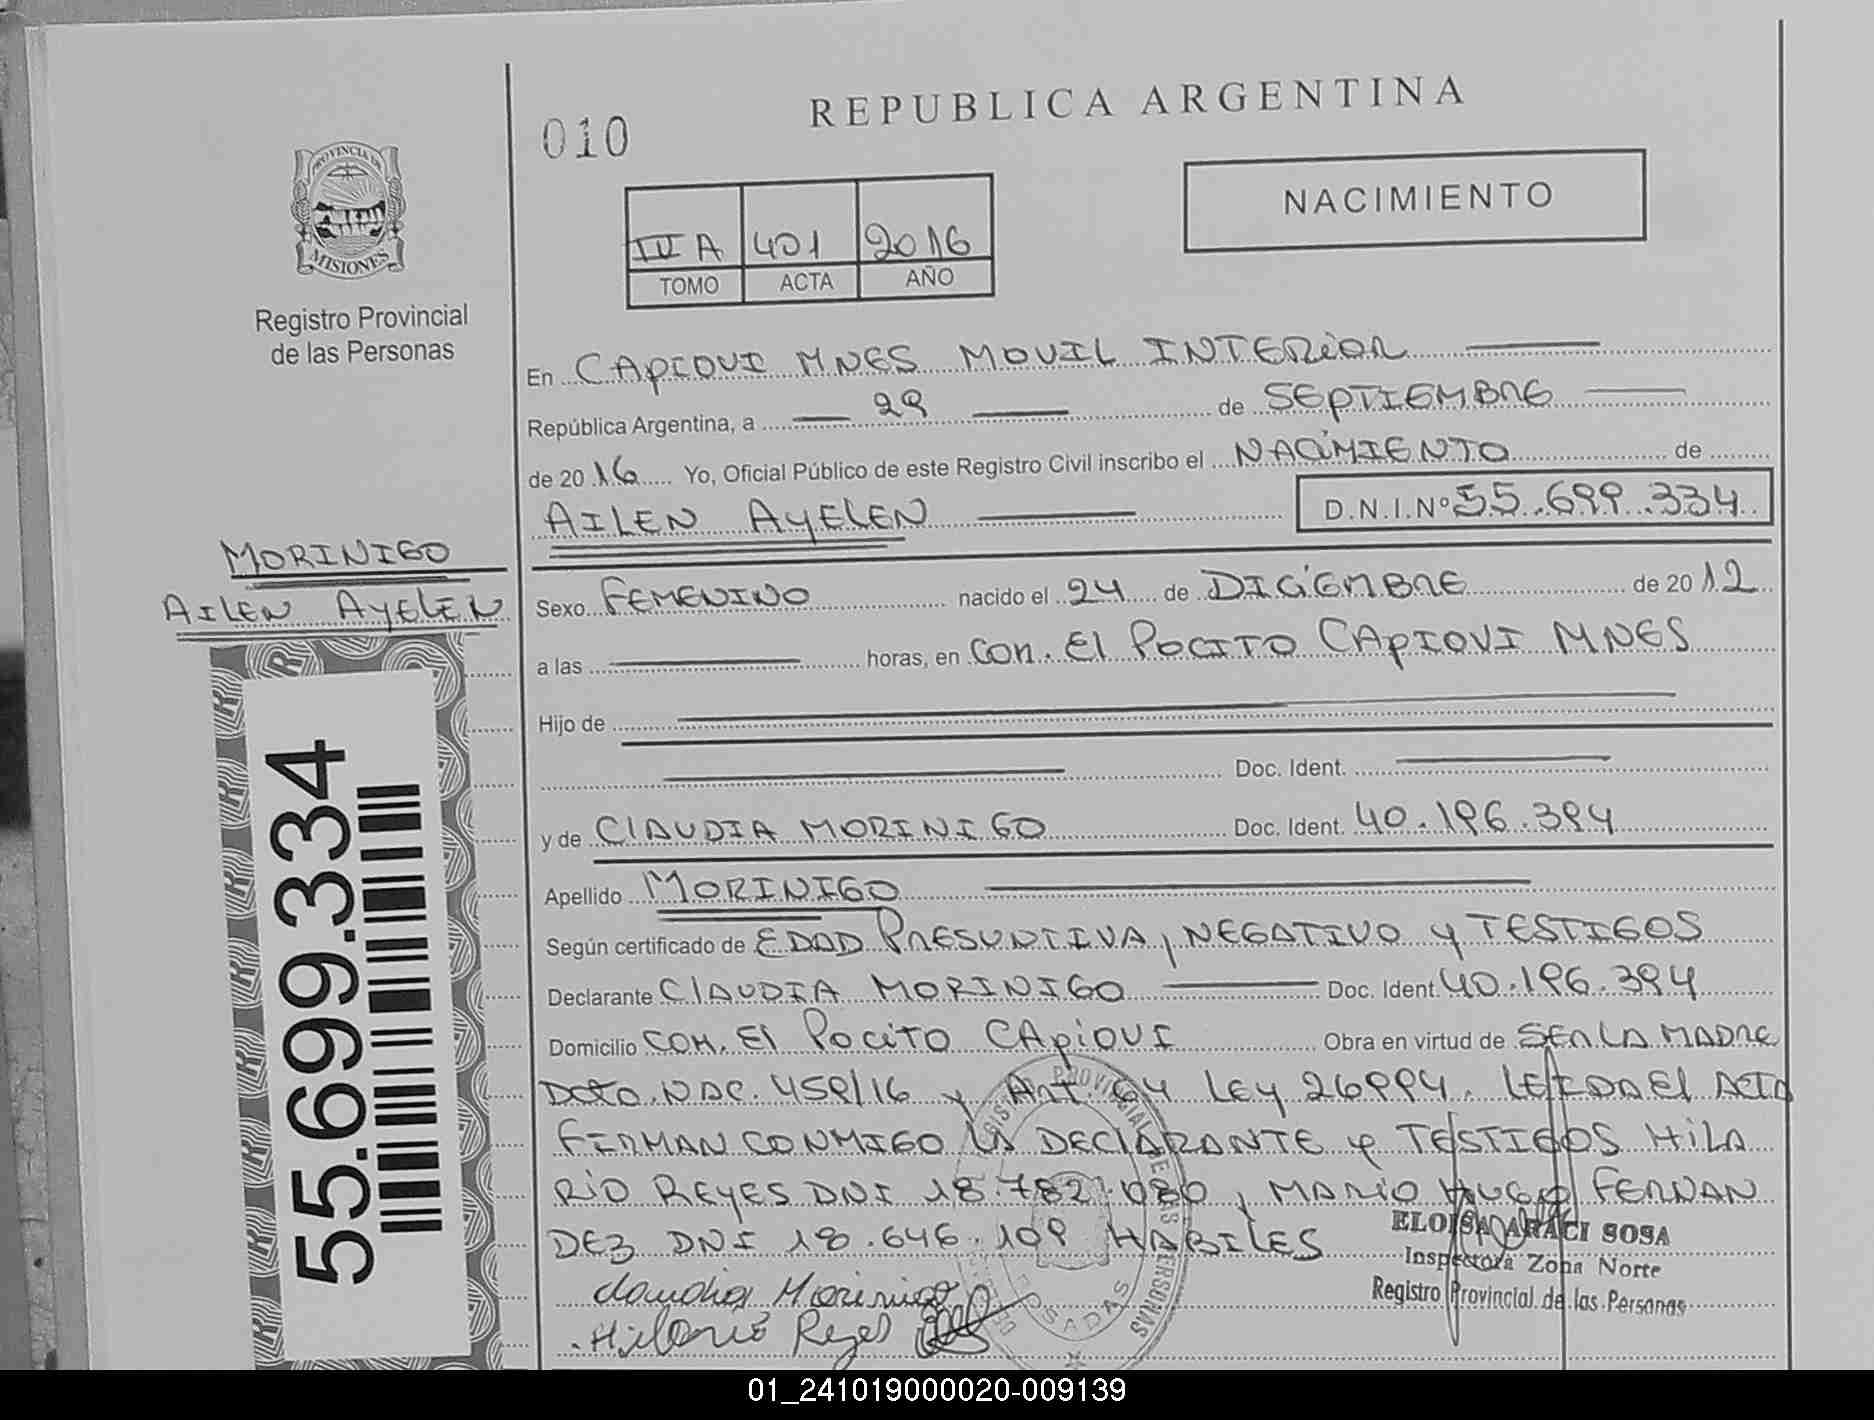 010
REPUBLICA ARGENTINA
NACIMIENTO
IV A 401 2016
TOMO ACTA AÑO
PROVINCIA DE
MISIONES
Registro Provincial
de las Personas
En CAPIOVI MNES MOVIL INTERIOR
República Argentina, a 29 de SEPTIEMBRE
de 2016 Yo, Oficial Público de este Registro Civil inscribo el NACIMIENTO de
AILEN AYELEN D.N.I.Nº 55.699.334
MORINIGO
AILEN AYELEN
Sexo FEMENINO nacido el 24 de DICIEMBRE de 2012
a las horas, en COM. El POCITO CAPIOVI MNES
Hijo de
Doc. Ident.
y de ClAUDIA MORINIGO Doc. Ident. 40.196.394
Apellido MORINIGO
Según certificado de EDAD PRESUNTIVA, NEGATIVO y TESTIGOS
Declarante ClAUDIA MORINIGO Doc. Ident. 40.196.394
Domicilio COM. El POCITO CAPIOVI Obra en virtud de SER LA MADRE
DCTO. NAC. 459/16 y ART. 64 LEY 26994. LEIDA El ACTA
FIRMAN CONMIGO LA DEClARANTE y TESTIGOS HILA
RIO REYES DNI 18.782.080, MARIO HUGO FERNAN
DEZ DNI 18.646.109 HABILES
55.699.334
ELOISA ARACI SOSA
Inspectora Zona Norte
Registro Provincial de las Personas
Claudia Morinigo
Hilario Reyes
PROVINCIAL DE LAS PERSONAS
POSADAS
01_241019000020-009139